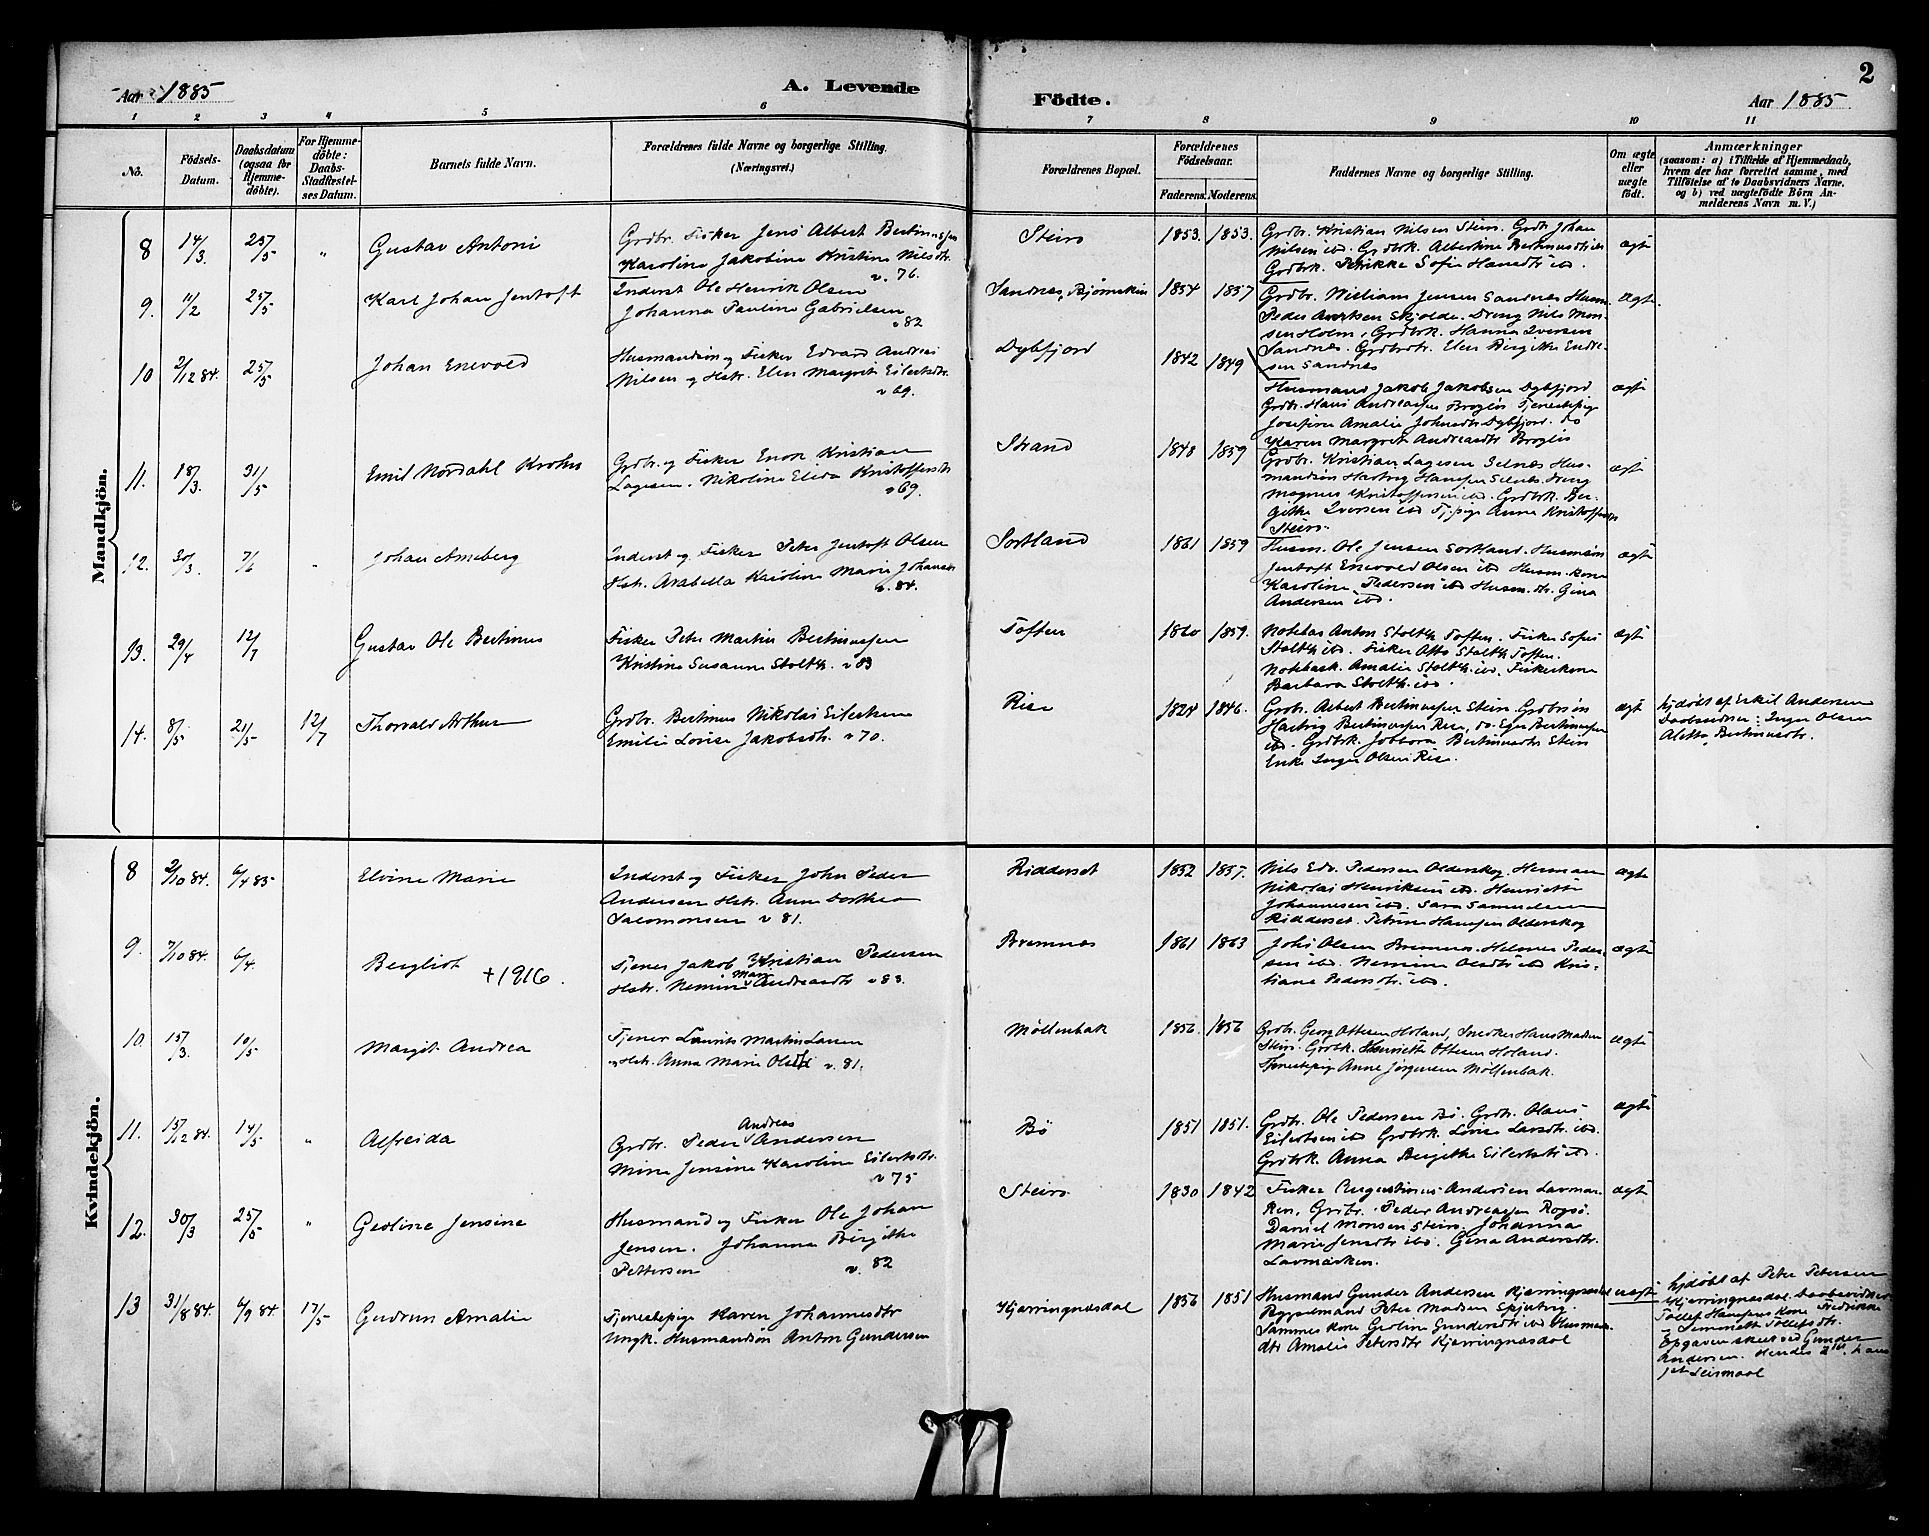 Aar 1885
A. Levende
Födte.
Aar 1885
2
1 2 3 4 5 6 7 8 9 10 11
No.
Födsels-Datum.
Daabsdatum (ogsaa for Hjemme-döbte).
For Hjemme-döbte: Daabs-Stadfæstel-ses Datum.
Barnets fulde Navn.
Forældrenes fulde Navne og borgerlige Stilling. (Næringsvei.)
Forældrenes Bopæl.
Forældrenes Födselsaar.
Faderens. Moderens.
Faddernes Navne og borgerlige Stilling.
Om ægte eller uægte födt.
Anmærkninger
(saasom: a) i Tilfælde af Hjemmedaab, hvem der har forrettet samme, med Tilföielse af to Daabsvidners Navne, og b) ved uægtefödte Börn An-melderens Navn m. V.)
Mandkjön.
8 14/3 25/5 " Gustav Antoni
Grdbr. Fisker Jens Albert Bertinussen
Karoline Jakobine Kristine Nilsdtr.
v. 76.
Steiro 1853. 1853.
Grdbr. Kristian Nilsen Steiro. Grdb. Johan
Nilsen ibd. Grdbrk. Albertine Bertinusdtr ibd.
Grdbrk. Petrikke Sofie Hansdtr ibd.
ægte
9. 11/2 25/5 Karl Johan Jentoft
Inderst Ole Henrik Olsen
Johanna Pauline Gabrielsen
v 82
Sandnes, Bjørnskin 1854 1857
Grdbr. William Jensen Sandnes Husm.
Peder Skjolde. Dreng Nils Mon-
sen Holm, Grdbrk. Hanna Iversen
Sandnes. Grdbrdtr. Elen Birgithe Endre-
sen Sandnes
ægte.
10 2/12 84. 25/5 Johan Enevold
Husmandsøn og Fisker Edvard Andreas
Nilsen og Hstr. Elen Margrete Eilertsdtr.
v 69.
Dybfjord 1842 1849
Husmand Jakob Jakobsen Dybfjord
Grdbr. Hans Andreassen Brogløs Tjenestepige
Josefine Amalie Johnsdtr Dybfjord. do
Karen Margrete Andreasdtr Brogløs
ægte
11. 18/3. 31/5 Emil Nordahl Krohn
Grdbr. og Fisker Enok Kristian
Lagesen. Nikoline Elida Kristoffersdtr
v 69.
Strand 1848 1859
Grdbr. Kristian Lagesen Selnæs Hus-
mandsøn Hartvig Hansen Selnes. Dreng
Magnus Kristoffersen ibd. Grdbrk. Ber-
githe Iversen ibd Tj.pige Anne Kristoffersen
Steiro.
ægte
12. 30/3. 7/6 " Johan Arneberg
Inderst og Fisker Peter Jentoft Olsen
Hstr. Arabella Karoline Marie Johansen
v. 84.
Sortland 1861 1859
Husm. Ole Jensen Sortland. Husmsøn
Jentoft Enevold Olsen ibd Husm. kone
Karoline Pedersen ibd Husm. dtr. Gina
Andersen ibd.
ægte
13. 29/4 12/7 Gustav Ole Bertinus
Fisker Peter Martin Bertinussen
Kristine Susanne Stolth. v 83
Toften 1860 1859.
Notebas Anton Stolth Toften. Fisker Sofus
Stolth ibd. Fisker Otto Stolth Toften.
Notebask. Amalie Stolth ibd. Fiskerkone
Barbara Stolth ibd.
ægte
14. 8/5 21/5 12/7 Thorvald Arthur
Grdbr. Bertinus Nikolai Eilertsen
Emilie Lovise Jakobsdtr. v 70.
Rise 1824 1846.
Grdb. Albert Bertinussen Steiro. Grdbrsøn
Hartvig Bertinussen Rise, do. Eger Bertinussen
ibd. Grdbrk. Jobbora Bertinusdtr Steiro
Enke Inger Olsen Rise.
ægte
hjdøbt af Eskil Andersen
Daabsvidner: Inger Olsen
Aletta Bertinusdtr.
Kvindekjön.
8 2/10 84. 6/4 85 Elvine Marie
Inderst og Fisker John Peder
Andersen Hstr. Anne Dorthea
Salomonsen v 81.
Ridderset 1852 1857.
Nils Edv. Pedersen Olderskog. Herman
Nikolai Henriksen ibd. Henriette
Johannesen ibd. Sara Samuelsen
Ridderset. Petrine Hansen Olderskog
ægte
9. 7/10 84. 6/4. Bergliot +1916.
Tjener Jakob Kristian Pedersen
Hstr. Nemine Marie Andreasdtr v 83.
Bremnæs 1861 1863
Johs Olsen Bremnes. Helmer Peder-
sen ibd. Nemine Olsdtr ibd Kris-
tiane Pedersdtr. ibd.
ægte
10. 15/3. 10/5 Margit Andrea
Tjener Laurits Martin Larsen
og Hstr. Anna Marie Olsdtr v. 81.
Møllenbak 1856. 1856
Grdbr. Georg Ottesen Holand, Snedker Hans Madsen
Steiro. Grdbrk. Henriette Ottesen Holand.
Tjenestepige Anne Jørgensen Møllenbak.
ægte
11. 15/12 84. 14/5 " Alfreida
Grdbr. Peder Andreas Andersen
Mine Jensine Karoline Eilertsdtr.
v 75
Bø 1851 1851.
Grdbr. Ole Pedersen Bø. Grdbr. Olaus
Eilertsen ibd Grdbrk. Lovise Larsdtr ibd.
Grdbrk. Anna Bergithe Eilertsdtr ibd.
ægte
12. 30/3 25/5 " Geoline Jensine
Husmand og Fisker Ole Johan
Jensen. Johanna Birgithe
Pettersen v. 82
Steiro 1830 1842
Fisker Augustinus Andersen Lavmar-
ken, Grdbr. Peder Andreassen Rogsø.
Daniel Monsen Steiro. Johanna
Marie Jensdtr ibd. Gina Andersdtr.
Lavmarken.
ægte
13 31/8 84. 6/9 84 17/5 Gudrun Amalie
Tjenestepige Karen Johannesdtr
Ungk. Husmandsøn Anton Gundersen
Kjærringnæsdal 1856 1851
Husmand Gunder Andersen Kjærringnæsdal
Peter Madsen
Sammes kone Geoline Gundersdtr ibd Husman-
dtr Amalie Petersdtr Kjærringnæsdal
uægte
hjdøbt af Peter Petersen
Kjærringnæsdal. Daabsvidner
Tollef Hansens kone Fredrikke
Tollefsdtr.
Opgaven skeet ved Gunder
Andersen. Hendes 2det, hans
1ste Leiermaal